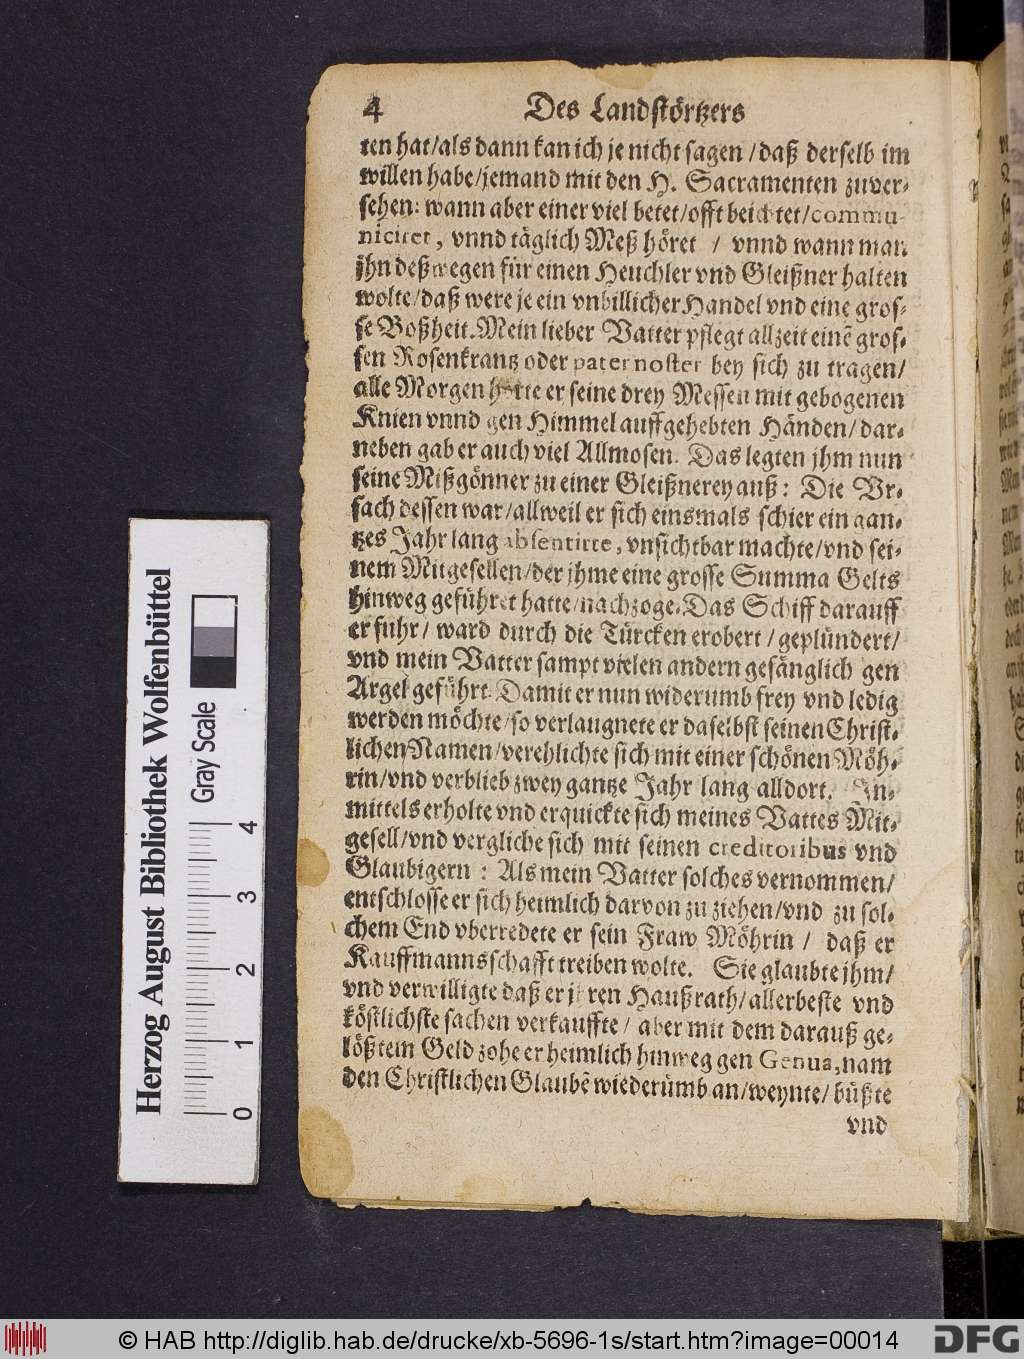 4 Des Landstörtzers
ten hat/als dann kan ich je nicht sagen/daß derselb im
willen habe/jemand mit den H. Sacramenten zuver-
sehen: wann aber einer viel betet/offt beichtet/commu-
niciret, vnnd täglich Meß höret / vnnd wann man
jhn deßwegen für einen Heuchler vnd Gleißner halten
wolte/daß were je ein vnbillicher Handel vnd eine gros-
se Boßheit. Mein lieber Vatter pflegt allzeit einē gros-
sen Rosenkrantz oder paternoster bey sich zu tragen/
alle Morgen hörte er seine drey Messen mit gebogenen
Knien vnnd gen Himmel auffgehebten Händen/dar-
neben gab er auch viel Allmosen. Das legten jhm nun
seine Mißgönner zu einer Gleißnerey auß: Die Vr-
sach dessen war/allweil er sich einsmals schier ein gan-
tzes Jahr lang absentirte, vnsichtbar machte/vnd sei-
nem Mitgesellen/der jhme eine grosse Summa Gelts
hinweg geführet hatte/nachzoge. Das Schiff darauff
er fuhr/ ward durch die Türcken erobert/geplündert/
vnd mein Vatter sampt vielen andern gefänglich gen
Argel geführt. Damit er nun widerumb frey vnd ledig
werden möchte/so verlaugnete er daselbst seinen Christ-
lichen Namen/verehlichte sich mit einer schönen Möh-
rin/vnd verblieb zwey gantze Jahr lang alldort. In-
mittels erholte vnd erquickte sich meines Vattes Mit-
gesell/vnd vergliche sich mit seinen creditoribus vnd
Glaubigern : Als mein Vatter solches vernommen/
entschlosse er sich heimlich darvon zu ziehen/vnd zu sol-
chem End vberredete er sein Fraw Möhrin / daß er
Kauffmannsschafft treiben wolte. Sie glaubte jhm/
vnd verwilligte daß er jhren Haußrath/allerbeste vnd
köstlichste sachen verkauffte/ aber mit dem darauß ge-
lößtem Geld zohe er heimlich hinweg gen Genua, nam
den Christlichen Glaubē wiederumb an/weynte/ büßte
vnd
Herzog August Bibliothek Wolfenbüttel
Gray Scale
0 1 2 3 4
© HAB http://diglib.hab.de/drucke/xb-5696-1s/start.htm?image=00014
DFG